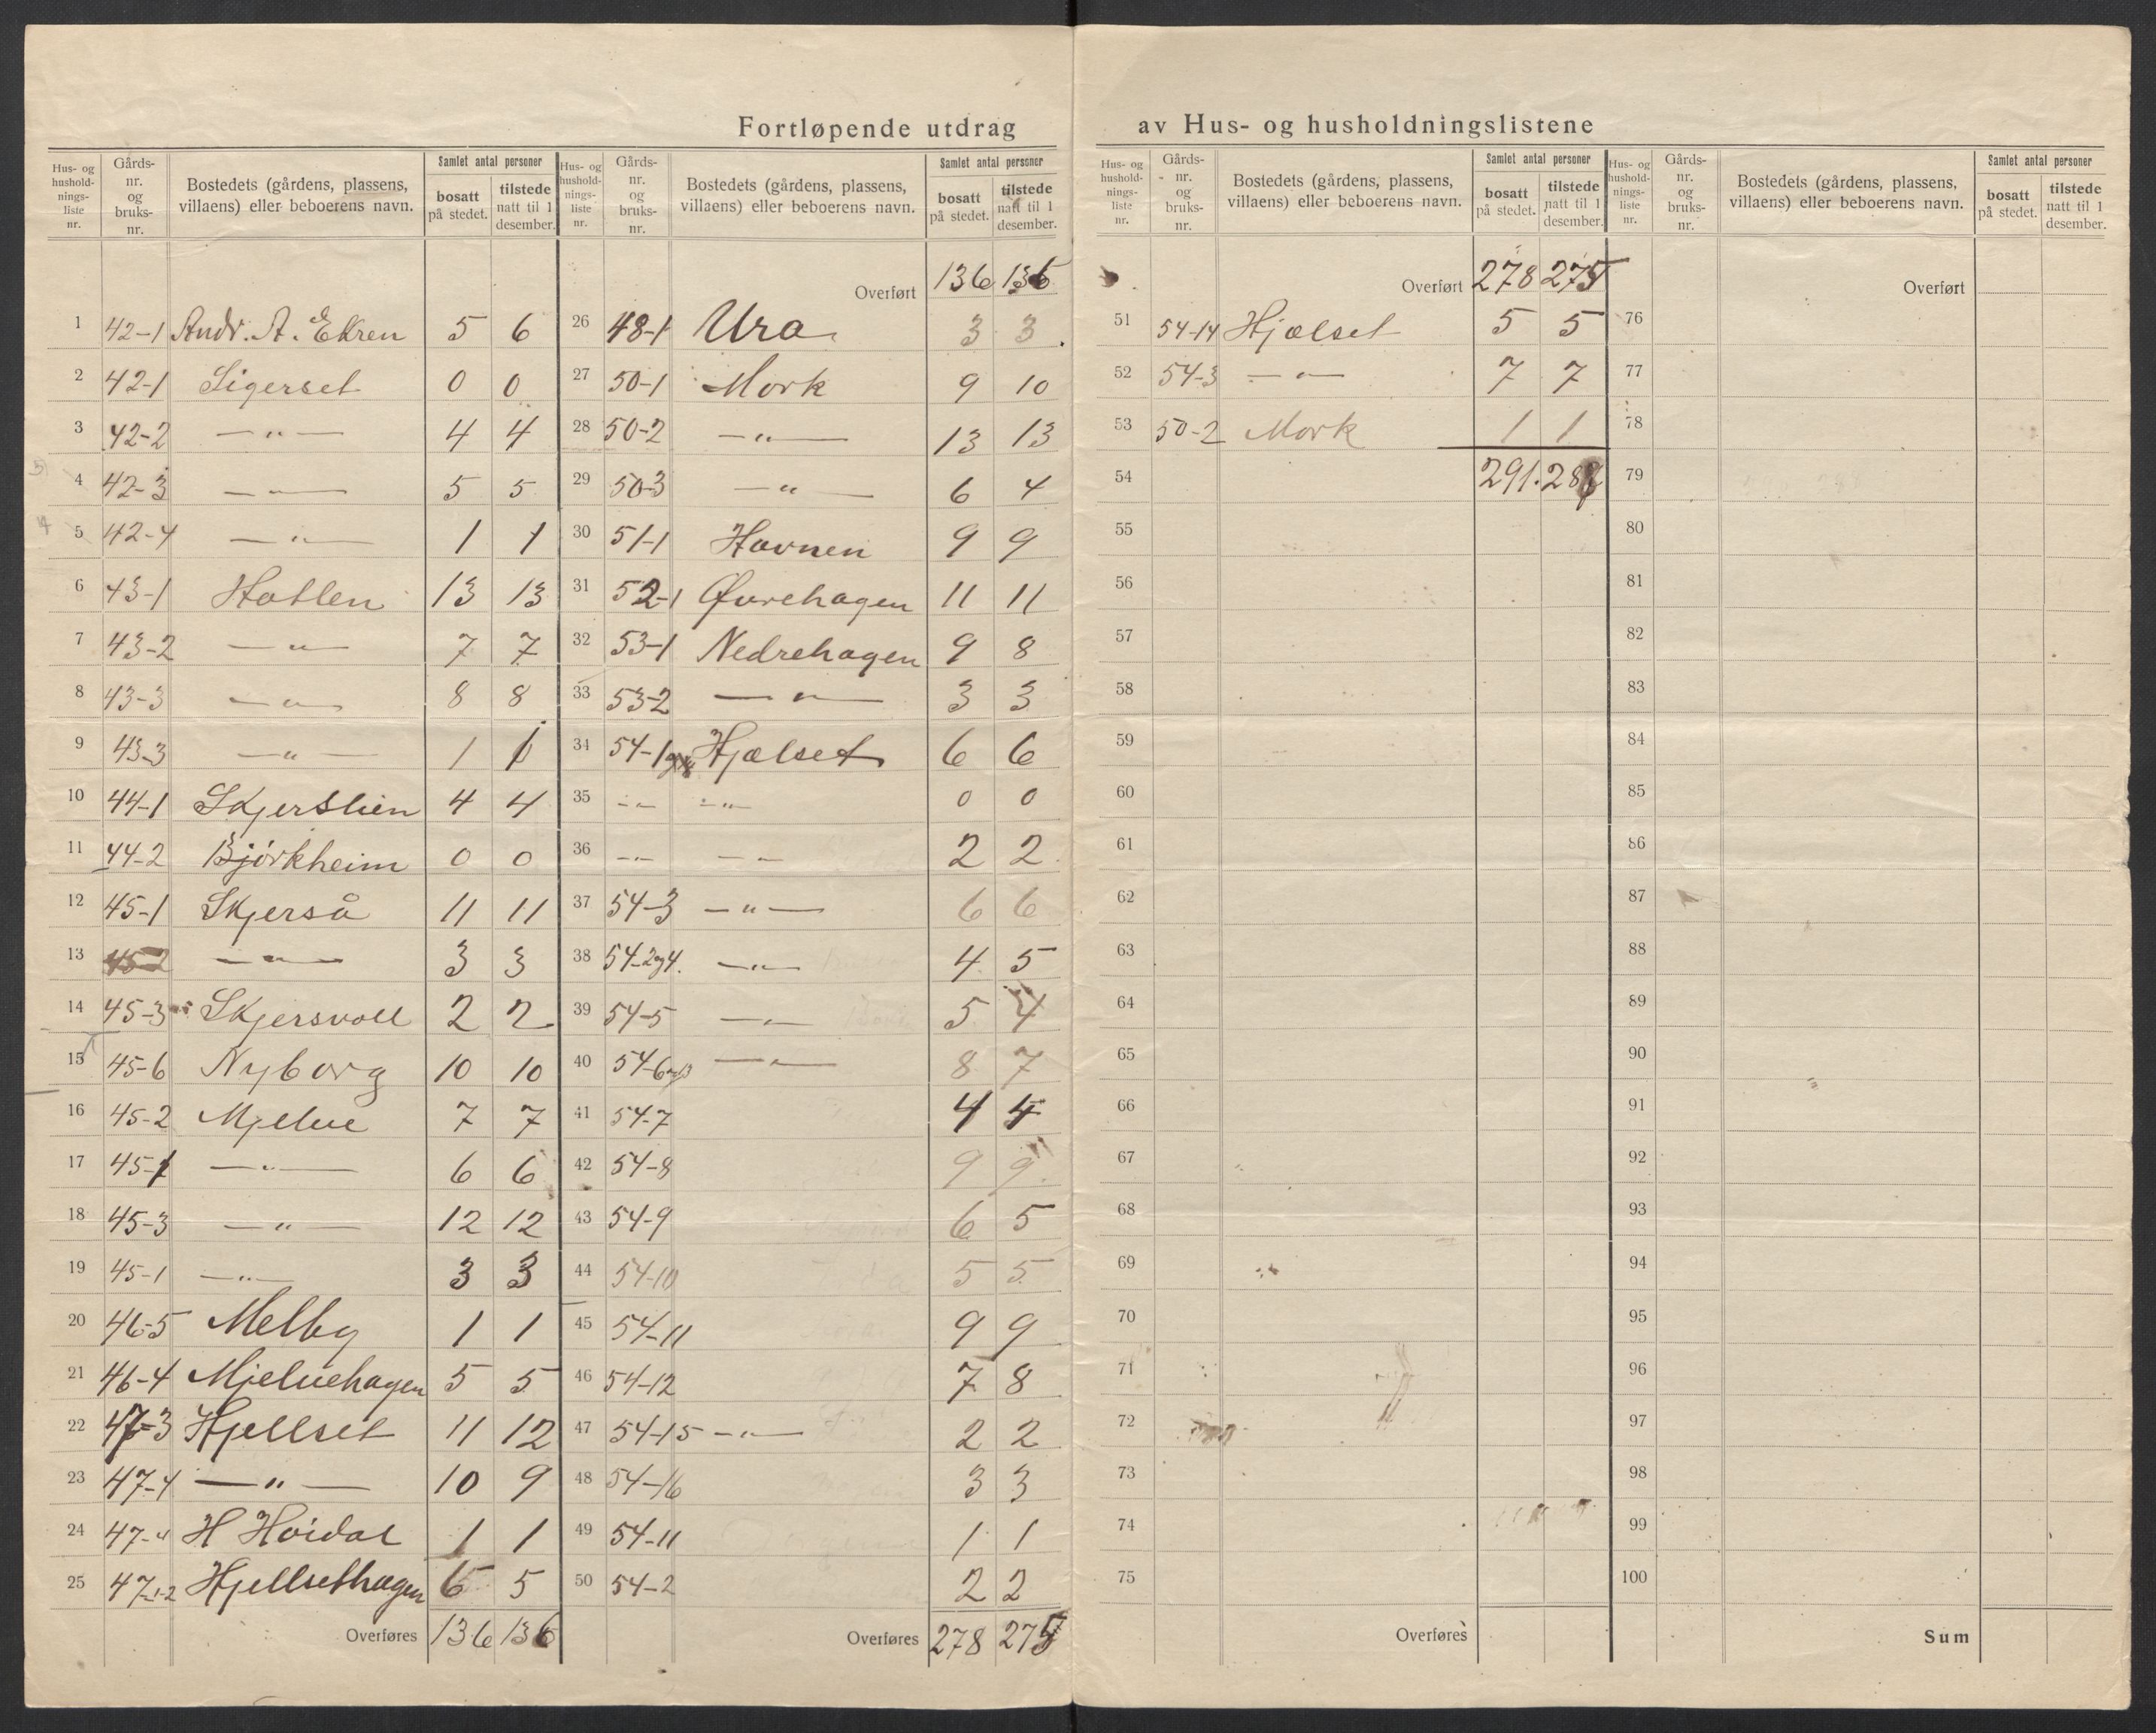 Fortløpende utdrag av Hus- og husholdningslistene
Hus- og hushold- nings- liste nr. | Gårds- nr. og bruks- nr. | Bostedets (gårdens, plassens, villaens) eller beboerens navn. | Samlet antal personer | bosatt på stedet. | tilstede natt til 1 desember.
1 42-1 Andr. A. Ekren 5 6
2 42-1 Sigerset 0 0
3 42-2 —"— 4 4
4 42-3 —"— 5 5
5 42-4 —"— 1 1
6 43-1 Hatlen 13 13
7 43-2 —"— 7 7
8 43-3 —"— 8 8
9 43-3 —"— 1 1
10 44-1 Skjerslien 4 4
11 44-2 Bjørkheim 0 0
12 45-1 Skjerså 11 11
13 45-2 —"— 3 3
14 45-3 Skjersvoll 2 2
15 45-6 Nyborg 10 10
16 45-2 Mjelve 7 7
17 45-1 —"— 6 6
18 45-3 —"— 12 12
19 45-1 —"— 3 3
20 46-5 Melby 1 1
21 46-4 Mjelvehagen 5 5
22 47-3 Hjellset 11 12
23 47-4 —"— 10 9
24 47-" H Hoidal 1 1
25 47-1-2 Hjellsethagen 6 5
Overføres 136 136
Hus- og hushold- nings- liste nr. | Gårds- nr. og bruks- nr. | Bostedets (gårdens, plassens, villaens) eller beboerens navn. | Samlet antal personer | bosatt på stedet. | tilstede natt til 1 desember.
Overført 136 136
26 48-1 Ura 3 3
27 50-1 Mork 9 10
28 50-2 —"— 13 13
29 50-3 —"— 6 4
30 51-1 Havnen 9 9
31 52-1 Øvrehagen 11 11
32 53-1 Nedrehagen 9 8
33 53-2 —"— 3 3
34 54-1 Hjelset 6 6
35 -"- -"- 0 0
36 -"- -"- 2 2
37 54-3 —"— 6 6
38 54-2og4. —"— 4 5
39 54-5 —"— 5 4
40 54-6og13 —"— 8 7
41 54-7 4 4
42 54-8 9 9
43 54-9 6 5
44 54-10 5 5
45 54-11 9 9
46 54-12 7 8
47 54-15 —"— 2 2
48 54-16 3 3
49 54-11 1 1
50 54-2 2 2
Overføres 278 275
Hus- og hushold- nings- liste nr. | Gårds- nr. og bruks- nr. | Bostedets (gårdens, plassens, villaens) eller beboerens navn. | Samlet antal personer | bosatt på stedet. | tilstede natt til 1 desember.
Overført 278 275
51 54-14 Hjelset 5 5
52 54-3 —"— 7 7
53 50-2 Mork 1 1
54 291. 288
55
56
57
58
59
60
61
62
63
64
65
66
67
68
69
70
71
72
73
74
75
Overføres
Hus- og hushold- nings- liste nr. | Gårds- nr. og bruks- nr. | Bostedets (gårdens, plassens, villaens) eller beboerens navn. | Samlet antal personer | bosatt på stedet. | tilstede natt til 1 desember.
Overført
76
77
78
79
80
81
82
83
84
85
86
87
88
89
90
91
92
93
94
95
96
97
98
99
100
Sum